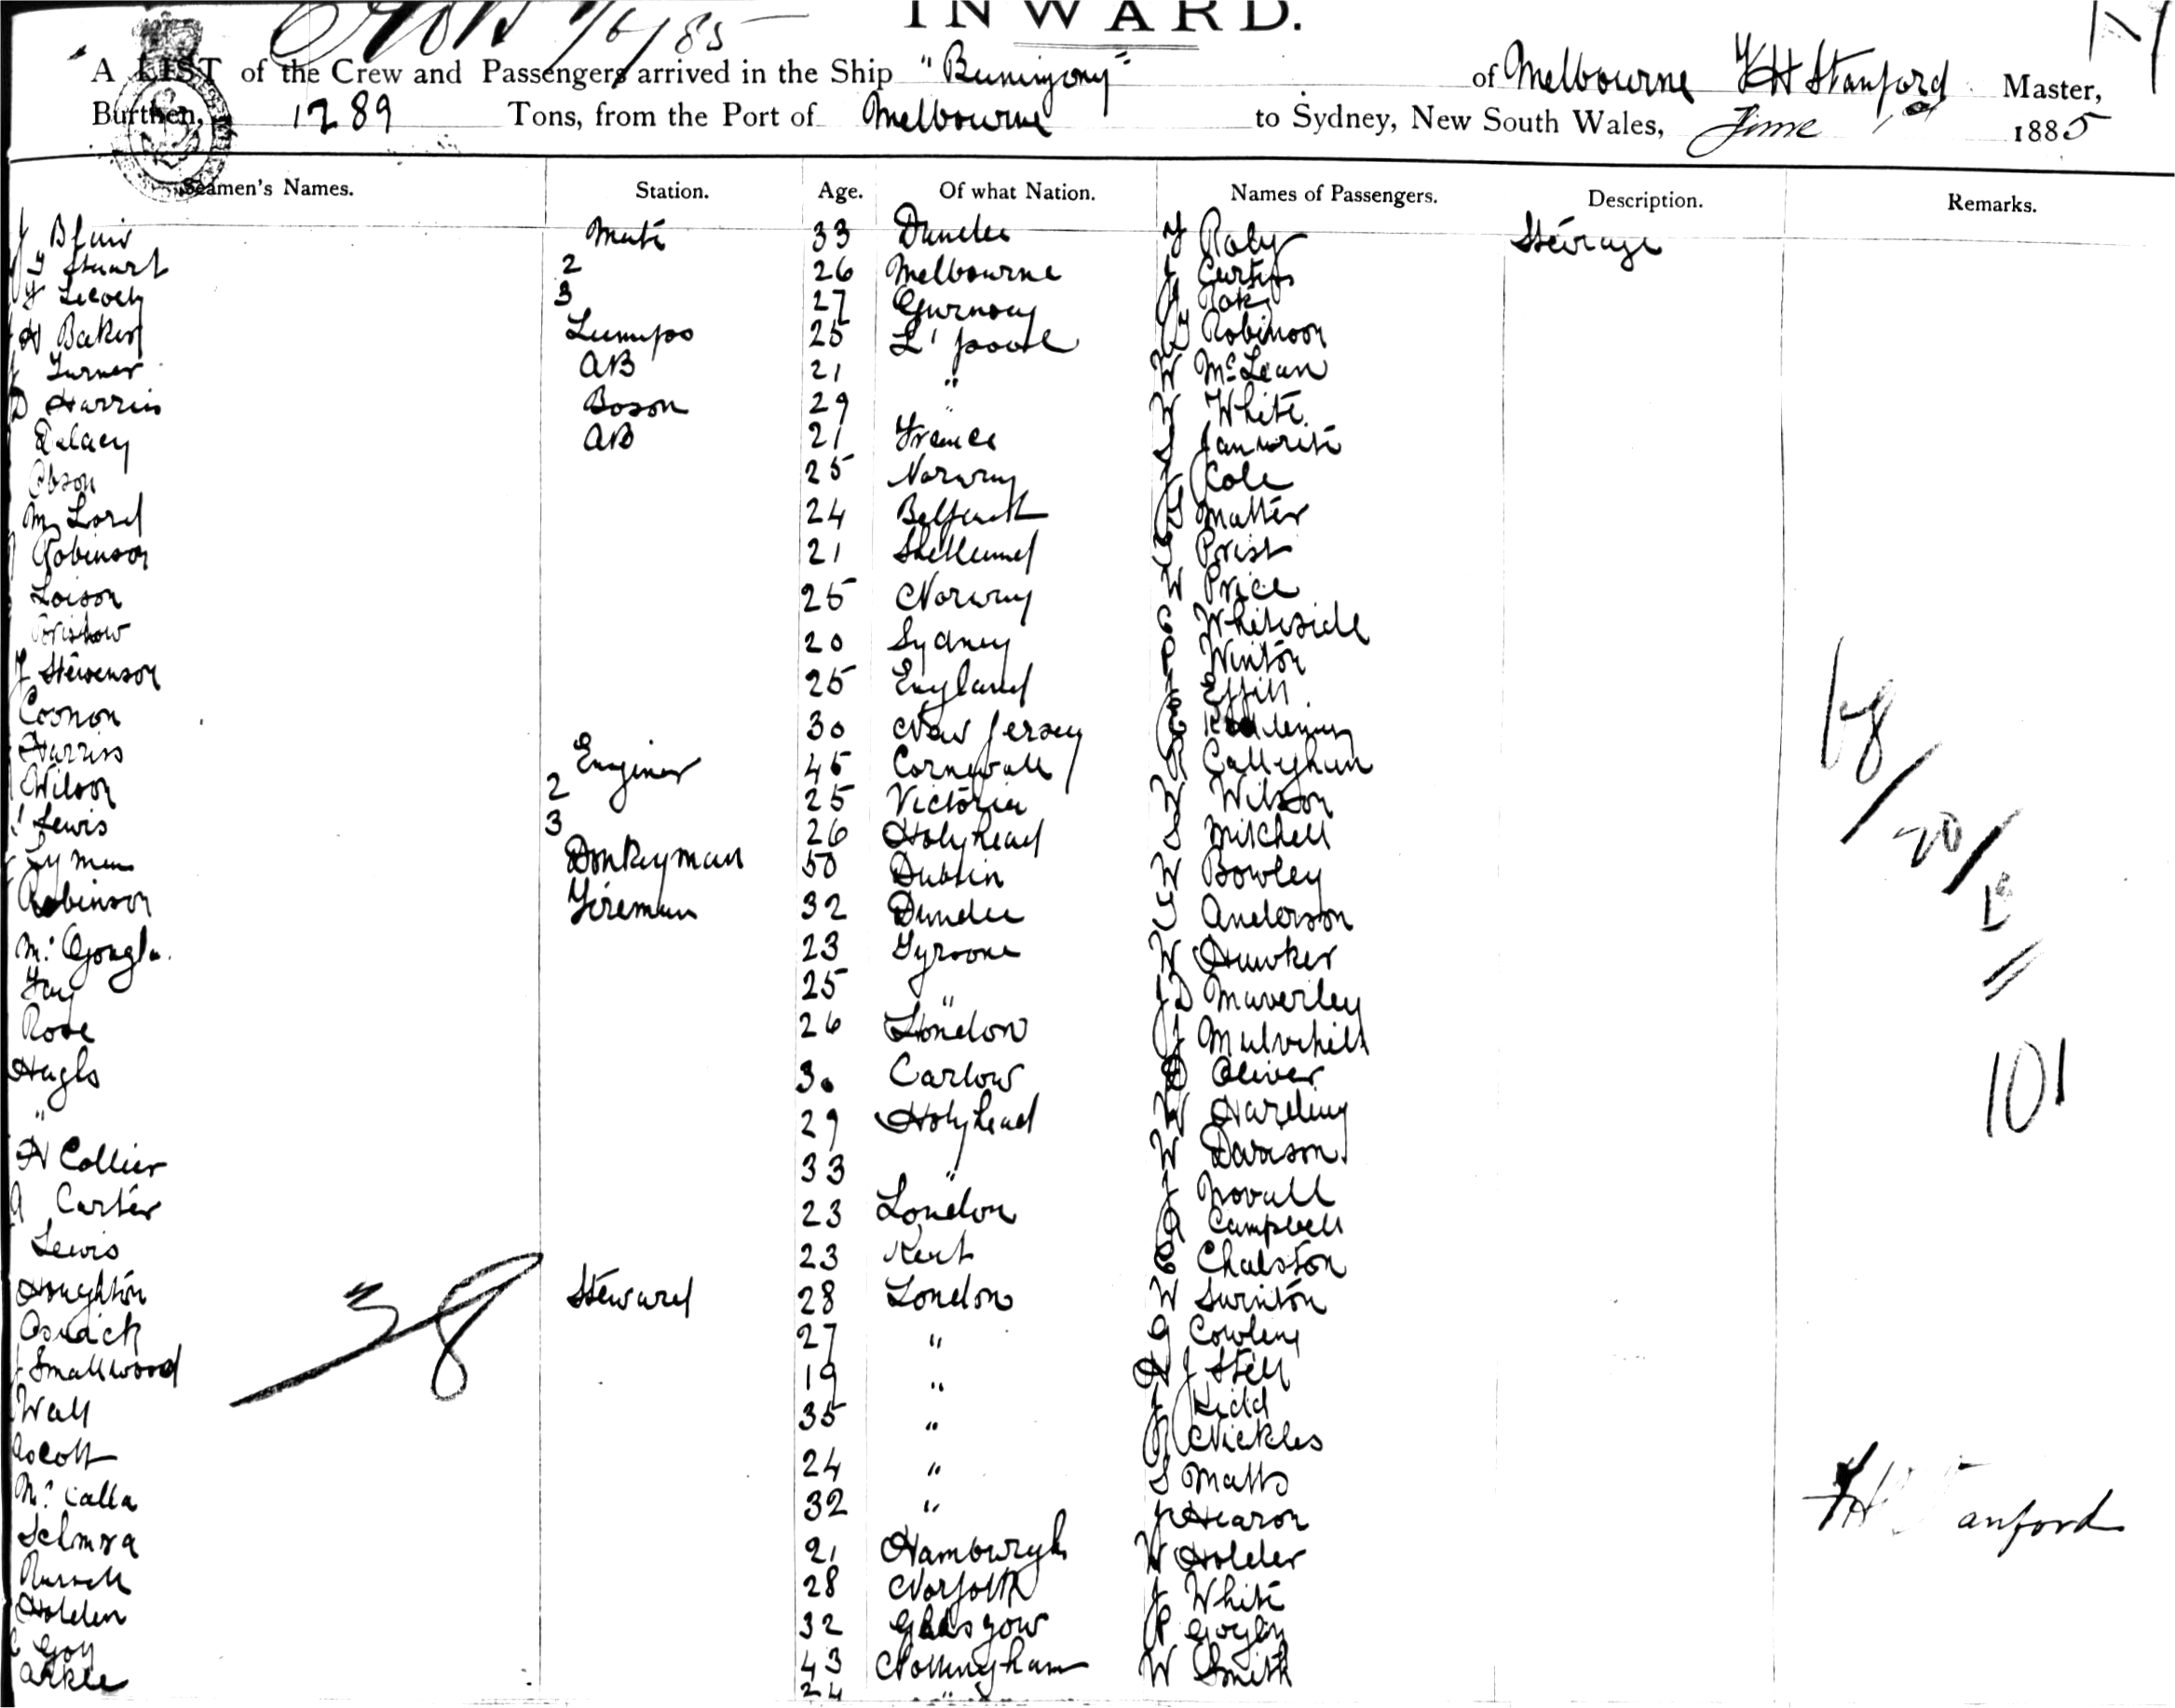 INWARD.
A LIST of the Crew and Passengers arrived in the Ship "Buninyong" of Melbourne Stanford Master,
Burthen, 1289 Tons, from the Port of Melbourne to Sydney, New South Wales, June 1st 1885
Seamen's Names. Station. Age. Of what Nation. Names of Passengers. Description. Remarks.
Blair Mate 33 Dundee Raby Steirage
Stuart 2 26 Melbourne J Curtis
3 27
H Baker Lamps 25 L'pool Robinson
J Turner AB 21 " W McLean
D Harris Boson 29 " W White
Delacy AB 21 France
25 Norway J Cole
M Lord 24 Belfast Matter
Robinson 21 Prist
Loison 25 Norway W Price
20 Sydney C Whiteside
J Stewenson 25 England Winton
Coonon 30 New Jersey
Harris Enginer 45 Cornwall Callaghan
Wilson 2 25 Victoria W Wilson
Lewis 3 26 Holyhead S Mitchell
Lyman Donkeyman 50 Dublin W Bowley
Robinson Fireman 32 Dundee Anderson
23 Tyroone W Hawker
Fay 25 " JD Maverley
Rose 26 London J Mulvihill
Hughs 30 Carlow Oliver
" 29 Holyhead W Harding
H Collier 33 " W Dawson
A Carter 23 London J Novall
Lewis 23 Kent Campbell
Houghton Steward 28 London C Chalston
27 " W Swinton
J Smallwood 19 " Cowley
Wall 35 " H J Still
Ascott 24 " J Kidd
McCalla 32 " Nickles
Selmra 21 Hamburgh S Matts
Russell 28 Norfolk J Hearon
Holden 32 Glasgow W Holder
Goy 43 Nottingham J White
Arkle 24 "
W Smith
38
68/20/13
101
Stanford